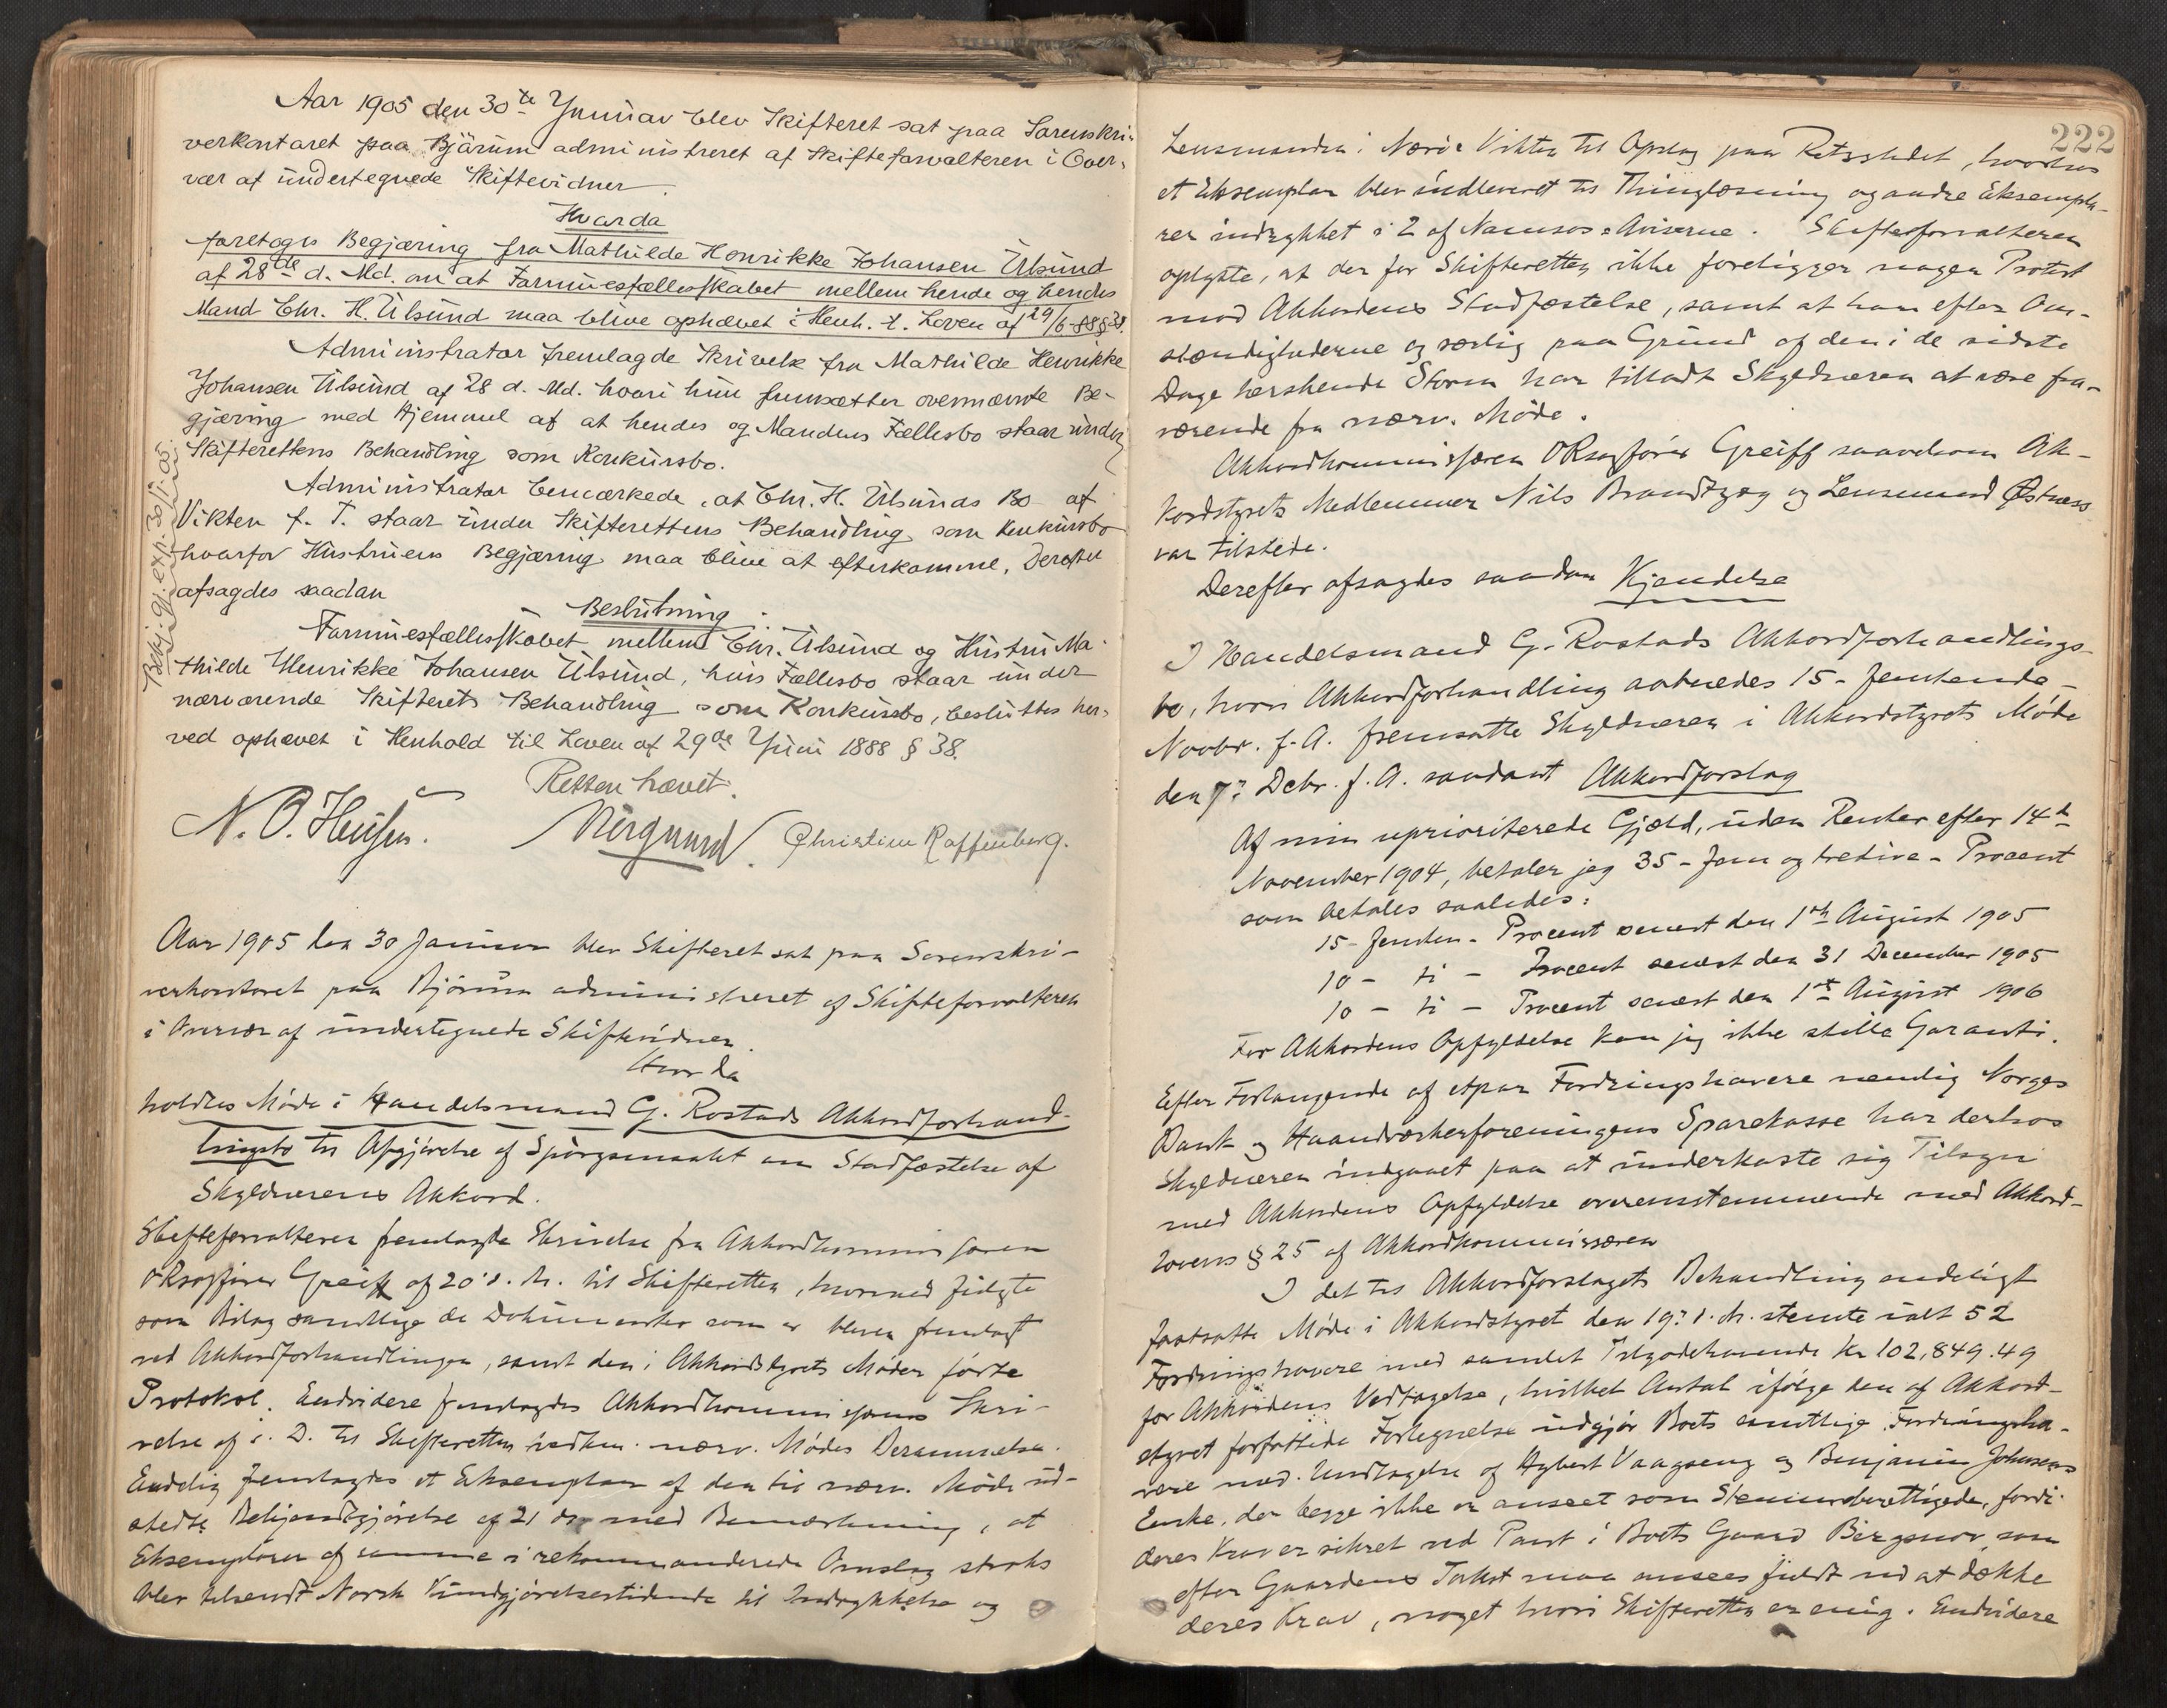 Aar 1905 den 30te Januar blev Skifteret sat paa Sorenskri-
verkontoret paa Bjørum administreret af Skifteforvalteren i Over-
vær af undertegnede Skiftevidner.
Hvorda
foretoges Begjæring fra Mathilde Henrikke Johansen Ulsund
af 28de d. Md. om at Formuesfællesskabet mellem hende og hendes
Mand Chr. H. Ulsund maa blive ophævet i Henh. t. Loven af 29/6-88 § 38.
Administrator fremlagde Skrivelse fra Mathilde Henrikke
Johansen Ulsund af 28 d. Md. hvori hun fremsætter ovennævnte Be-
gjæring med Hjemmel af at hendes og Mandens Fællesbo staar under
Skifterettens Behandling som Konkursbo.
Administrator bemærkede, at Chr. H. Ulsunds Bo af
Vikten f. T. staar under Skifterettens Behandling som Konkursbo
hvorfor Hustruens Begjæring maa blive at efterkomme. Derefter
afsagdes saadan
Beslutning:
Formuesfællesskabet mellem Chr. Ulsund og Hustru Ma-
thilde Henrikke Johansen Ulsund, hvis Fællesbo staar under
nærværende Skifterets Behandling som Konkursbo, besluttes her-
ved ophævet i Henhold til Loven af 29de Juni 1888 § 38.
Retten hævet.
Bekj.gj. exp. 30/1-05.
Aar 1905 den 30 Januar blev Skifteret sat paa Sorenskri-
verkontoret paa Bjørum administreret af Skifteforvalteren
i Overvær af undertegnede Skiftevidner.
Hvorda
holdtes Møde i Handelsmand G. Rostads Akkordforhand-
lingsbo til Afgjørelse af Spørgsmaalet om Stadfæstelse af
Skyldnerens Akkord.
Skifteforvalteren fremlagde Skrivelse fra Akkordkommissæren
ORsagfører Greiff af 20' d. M. til Skifteretten, hvormed fulgte
som Bilag samtlige de Dokumenter som er bleven fremlagt
ved Akkordforhandlingen, samt den i Akkordstyrets Møder førte
Protokol. Endvidere fremlagdes Akkordkommissærens Skri-
velse af s. D. til Skifteretten vedkom. nærv. Mødes Berammelse.
Endelig fremlagdes et Eksemplar af den til nærv. Møde ud-
stedte Bekjendtgjørelse af 21 ds med Bemærkning, at
Eksemplarer af samme i rekommanderede Omslag straks
blev tilsendt Norsk Kundgjørelsestidende til Indrykkelse og
222
Lensmanden i Nærø Vikten til Opslag paa Retsstedet, hvorhos
et Eksemplar blev indleveret til Thinglæsning og andre Eksempla-
rer indrykket i 2 af Namsos-Aviserne. Skifteforvalteren
oplyste, at der for Skifteretten ikke foreligger nogen Protest
mod Akkordens Stadfæstelse, samt at han efter Om-
stændighederne og særlig paa Grund af den i de sidste
Dage herskende Storm har tilladt Skyldneren at være fra-
værende fra nærv. Møde.
Akkordkommissæren ORsagfører Greiff saavelsom Ak-
kordstyrets Medlemmer Nils Brandtzæg og Lensmand Østnes
var tilstede.
Derefter afsagdes saadan Kjendelse
I Handelsmand G. Rostads Akkordforhandlings-
bo, hvori Akkordforhandling aabnedes 15 - femtende -
Novbr. f. A. fremsatte Skyldneren i Akkordstyrets Møde
den 7: Debr. f. A. saadant Akkordforslag
Af min uprioriterede Gjæld, uden Renter efter 14de
November 1904, betaler jeg 35 - fem og tredive - Procent
som betales saaledes:
15 - femten - Procent senest den 1ste August 1905
10 - ti - Procent senest den 31 December 1905
10 - ti - Procent senest den 1ste August 1906
For Akkordens Opfyldelse kan jeg ikke stille Garanti.
Efter Forlangende af etpar Fordringshavere nemlig Norges
Bank og Haandværkerforeningens Sparekasse har derhos
Skyldneren indgaaet paa at underkaste sig Tilsyn
med Akkordens Opfyldelse overensstemmende med Akkord-
lovens § 25 af Akkordkommissæren
I det til Akkordforslagets Behandling endeligt
fastsatte Møde i Akkordstyret den 19: d. M. stemte ialt 52
Fordringshavere med samlet Tilgodehavende Kr 102,849.49
for Akkordens Vedtagelse, hvilket Antal ifølge den af Akkord-
styret forfattede Fortegnelse udgjør Boets samtlige Fordringsha-
vere med Undtagelse af Vaagseng og Benjamin Johnsens
Enke, der begge ikke er anseet som Stemmeberettigede, fordi
deres Krav er sikret ved Pant i Boets Gaard som
efter Gaardens Takst maa ansees fuldt ud at dække
deres Krav, noget hvori Skifteretten er enig. Endvidere